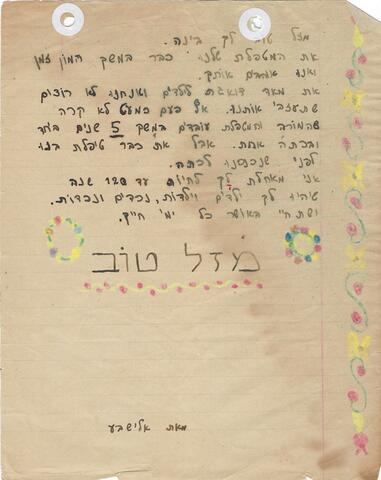 מזל טוב לך בינה.
את המטפלת שלנו כבר במשך המון זמן
ואנו אוהבים אותך.
את מאד דואגת לילדים ואנחנו לא רוצים
שתעזבי אותנו. אף פעם כמעט לא קרה
שהמורה והמטפלת עובדים במשך 5 שנים ביחד
ובכתה אחת. אבל את כבר טיפלת בנו
לפני שנכנסנו לכתה.
אני מאחלת לך לחיות עד 120 שנה
שיהיו לך ילדים וילדות, נכדים ונכדות.
ושתחיי באושר כל ימי חייך.
מזל טוב
מאת אלישבע